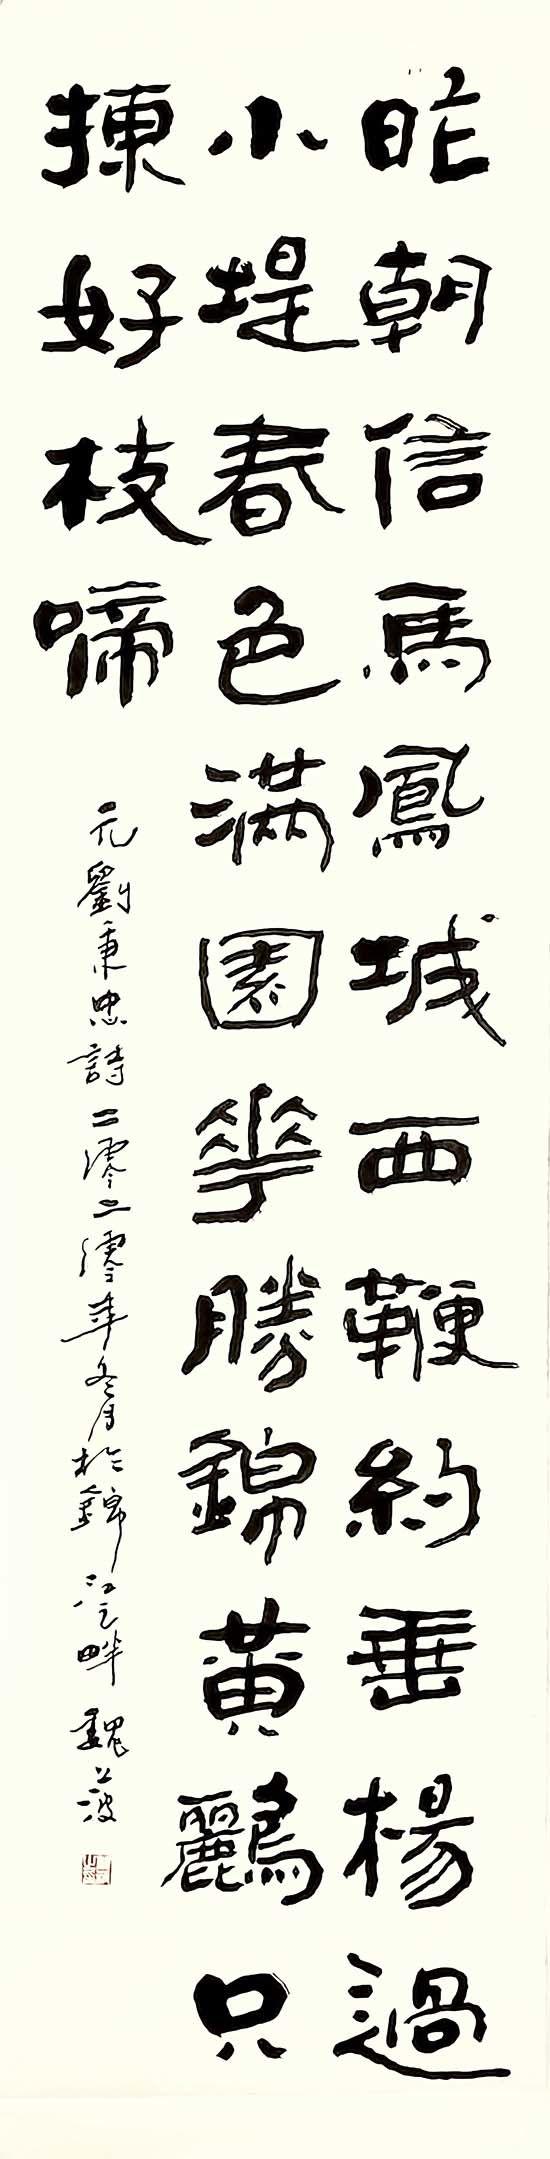 昨朝信馬鳳城西鞭約垂楊過
小堤春色滿園華勝錦黃鸝只
揀好枝啼
元劉秉忠詩二零二零年冬月於錦江之畔魏